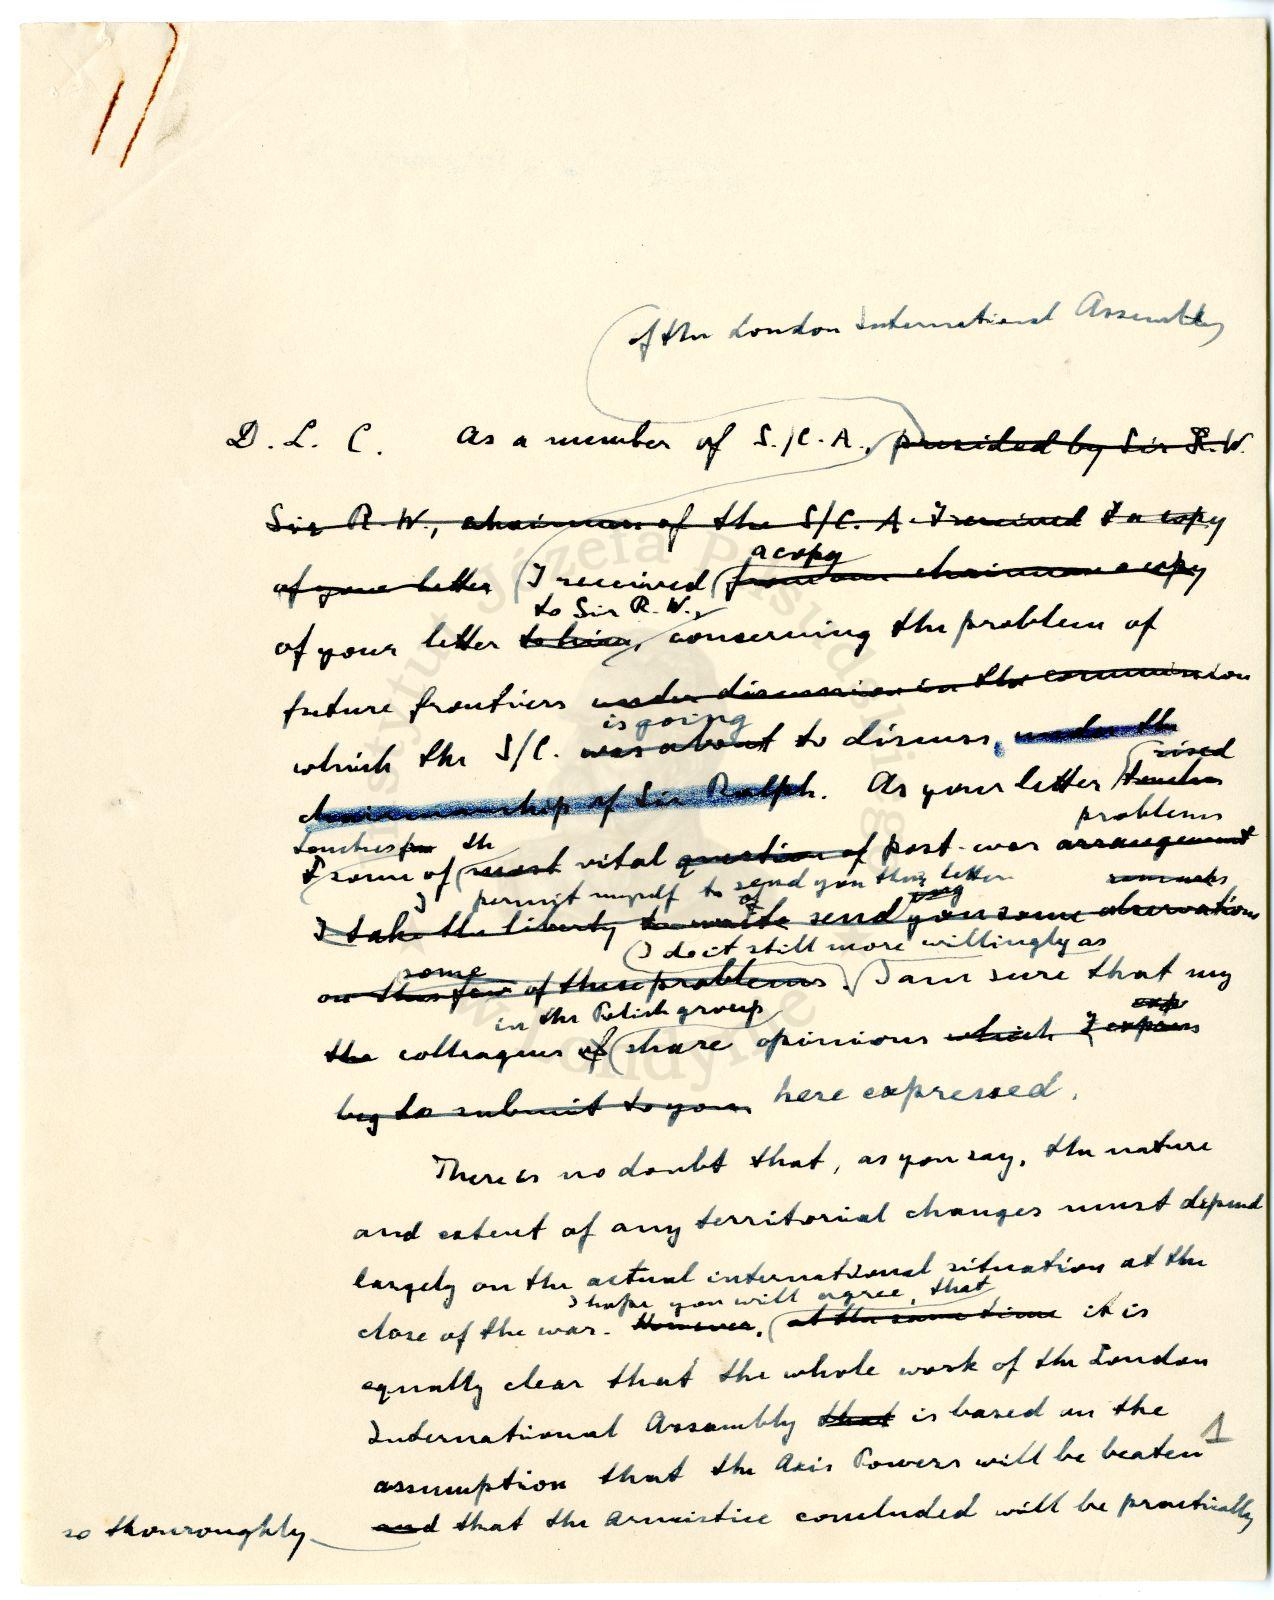 of the London International Assembly
D. L. C. As a member of S./C. A., presided by Sir R. W.
Sir R. W., chairman of the S/C. A. I received I a copy
of your letter I received from our chairman a copy
a copy
to Sir R. W.,
of your letter to him, concerning the problem of
future frontiers under discussion in the commission
is going
which the S/C. was about to discuss, under the
rised
chairmanship of Sir Ralph. As your letter touches
problems
touches the
some of most vital question of post-war arrangement
I permit myself to send you this letter
remarks
I take the liberty to write send you some observations
I do it still more willingly as
some
on this few of these problems. I am sure that my
in the Polish group
exp
the colleagues of share opinions which I express
beg to submit to you here expressed.
There is no doubt that, as you say, the nature
and extent of any territorial changes must depend
largely on the actual international situation at the
I hope you will agree, that
close of the war. However, at the same time it is
equally clear that the whole work of the London
International Assembly that is based on the
1
assumption that the Axis Powers will be beaten
so thouroughly and that the armistice concluded will be practically
Instytut Józefa Piłsudskiego w Londynie